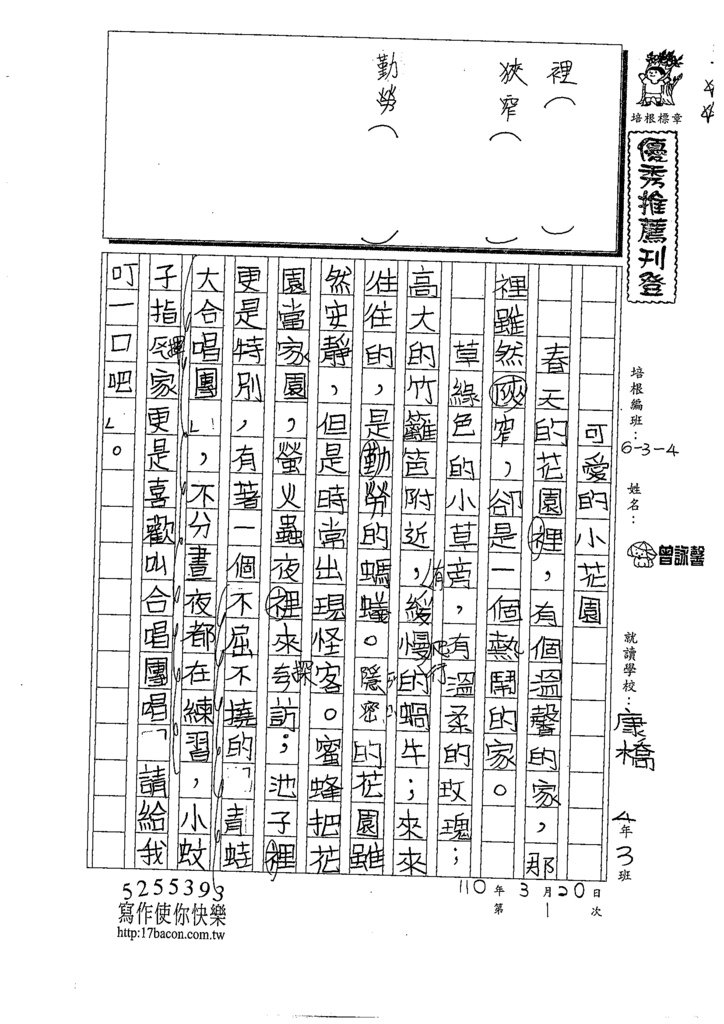 裡（　）
狹窄（　）
勤勞（　）
培根標章
優秀推薦刊登
培根編班：6-3-4
姓名：曾詠馨
就讀學校：康橋
4年3班
110年3月20日
第1次
可愛的小花園
春天的花園裡，有個溫馨的家，那
裡雖然狹窄，卻是一個熱鬧的家。
草綠色的小草旁，有溫柔的玫瑰；
高大的竹籬笆附近，有緩慢爬行的蝸牛；來來
往往的，是勤勞的螞蟻。隱密的花園雖
然安靜，但是時常出現怪客。蜜蜂把花
園當家園，螢火蟲夜裡來探訪；池子裡
更是特別，有著一個不屈不撓的「青蛙
大合唱團」，不分晝夜都在練習，小蚊
子指揮家更是喜歡叫合唱團唱「請給我
叮一口吧」。
5255393
寫作使你快樂
http:17bacon.com.tw